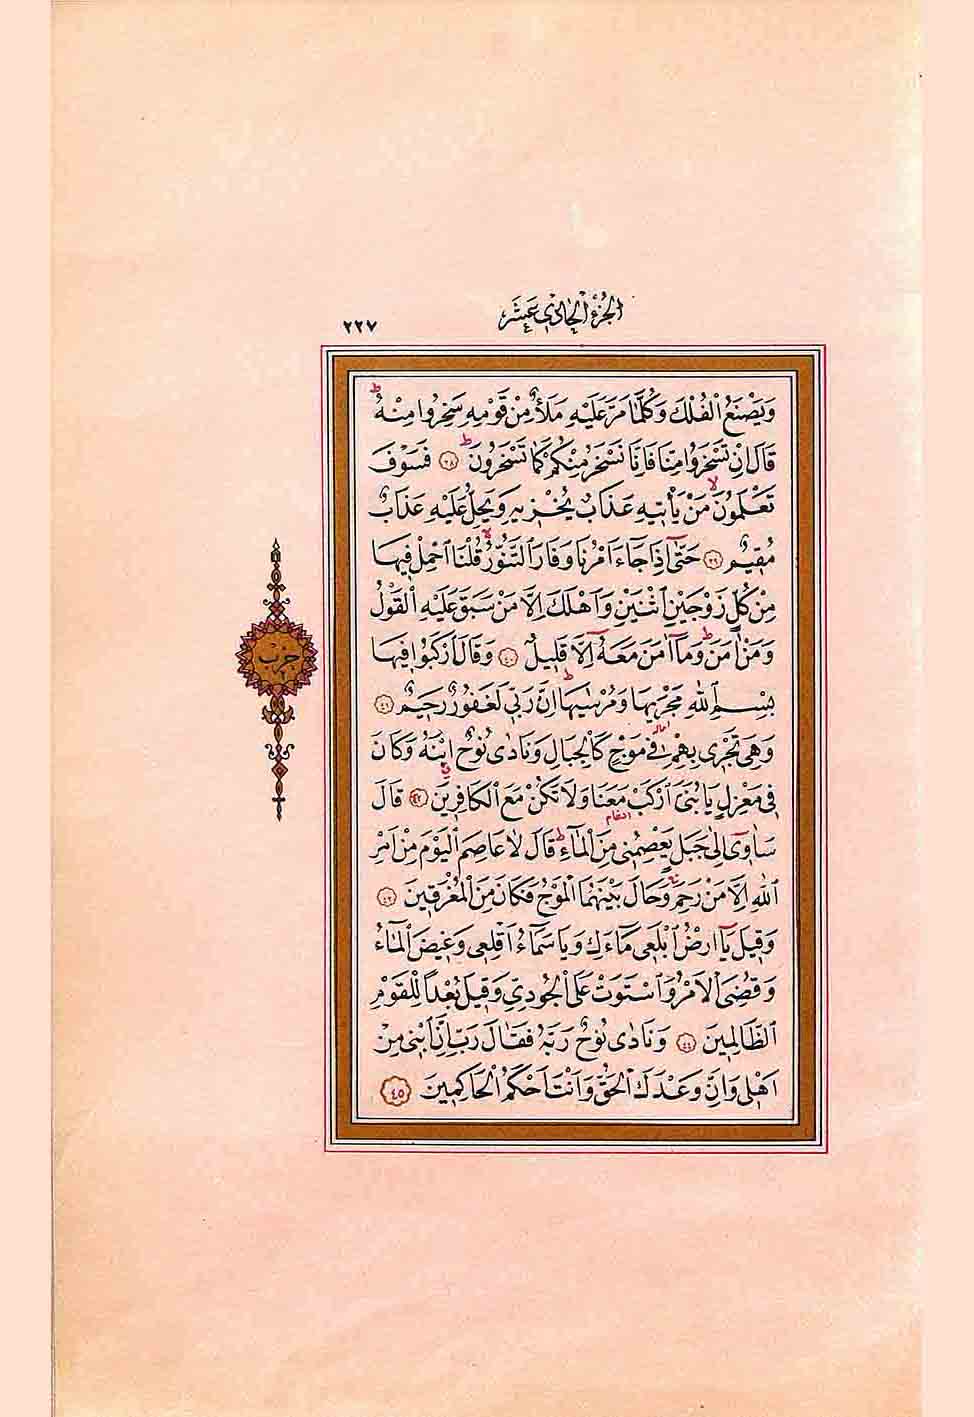 الجزء الحادي عشر
٢٢٧
وَيَصْنَعُ الْفُلْكَ وَكُلَّمَا مَرَّ عَلَيْهِ مَلَأٌ مِنْ قَوْمِهِ سَخِرُوا مِنْهُ ط
قَالَ اِنْ تَسْخَرُوا مِنَّا فَاِنَّا نَسْخَرُ مِنْكُمْ كَمَا تَسْخَرُونَ ط ٣٨ فَسَوْفَ
تَعْلَمُونَ لا مَنْ يَأْتِيهِ عَذَابٌ يُخْزِيهِ وَيَحِلُّ عَلَيْهِ عَذَابٌ
مُقِيمٌ ٣٩ حَتّٰى اِذَا جَاءَ اَمْرُنَا وَفَارَ التَّنُّورُ قُلْنَا احْمِلْ فِيهَا
مِنْ كُلٍّ زَوْجَيْنِ اثْنَيْنِ وَاَهْلَكَ اِلَّا مَنْ سَبَقَ عَلَيْهِ الْقَوْلُ
وَمَنْ اٰمَنَ ط وَمَا اٰمَنَ مَعَهُ اِلَّا قَلِيلٌ ٤٠ وَقَالَ ارْكَبُوا فِيهَا
بِسْمِ اللّٰهِ مَجْرٰيهَا وَمُرْسٰيهَا ط اِنَّ رَبِّى لَغَفُورٌ رَحِيمٌ ٤١
وَهِىَ تَجْرِى بِهِمْ فِى مَوْجٍ كَالْجِبَالِ وَنَادٰى نُوحٌ ابْنَهُ وَكَانَ
فِى مَعْزِلٍ يَا بُنَىَّ ارْكَبْ مَعَنَا وَلَا تَكُنْ مَعَ الْكَافِرِينَ ٤٢ قَالَ
سَاٰوِى اِلٰى جَبَلٍ يَعْصِمُنِى مِنَ الْمَاءِ ط قَالَ لَا عَاصِمَ الْيَوْمَ مِنْ اَمْرِ
اللّٰهِ اِلَّا مَنْ رَحِمَ وَحَالَ بَيْنَهُمَا الْمَوْجُ فَكَانَ مِنَ الْمُغْرَقِينَ ٤٣
وَقِيلَ يَا اَرْضُ ابْلَعِى مَاءَكِ وَيَا سَمَاءُ اَقْلِعِى وَغِيضَ الْمَاءُ
وَقُضِىَ الْاَمْرُ وَاسْتَوَتْ عَلَى الْجُودِىِّ وَقِيلَ بُعْدًا لِلْقَوْمِ
الظَّالِمِينَ ٤٤ وَنَادٰى نُوحٌ رَبَّهُ فَقَالَ رَبِّ اِنَّ ابْنِى مِنْ
اَهْلِى وَاِنَّ وَعْدَكَ الْحَقُّ وَاَنْتَ اَحْكَمُ الْحَاكِمِينَ ٤٥
حزب
٢